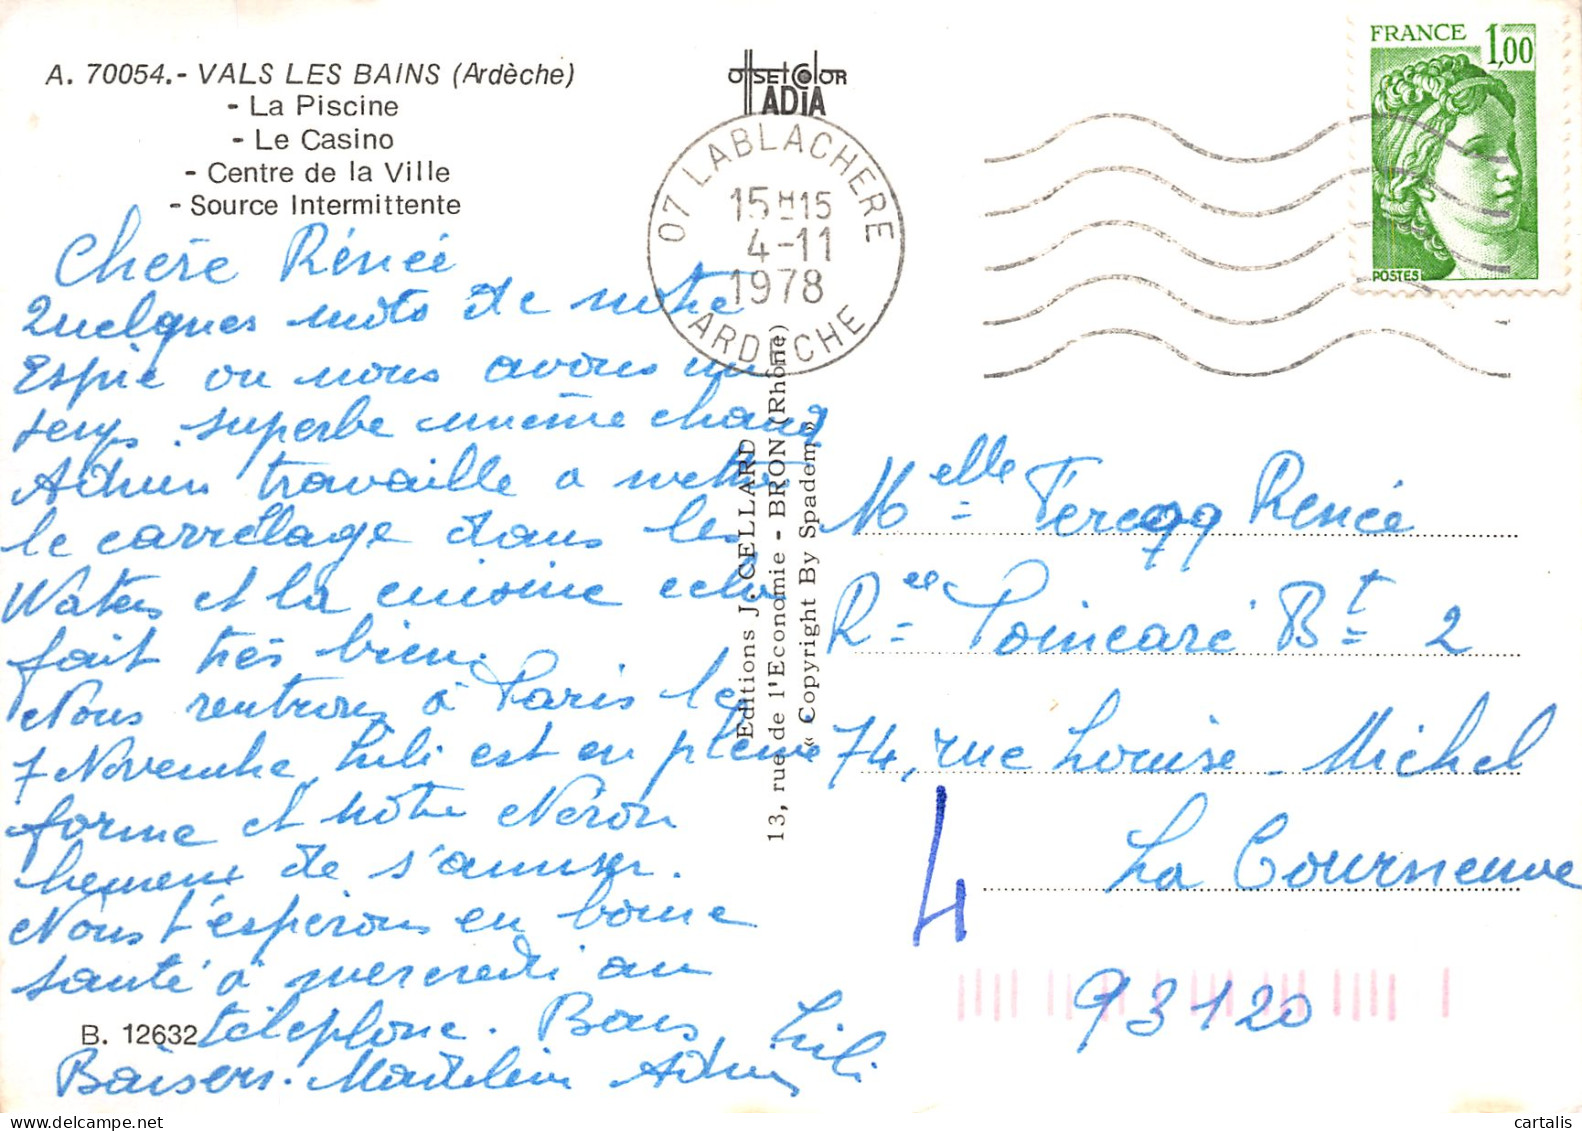 A. 70054.- VALS LES BAINS (Ardèche)
- La Piscine
- Le Casino
- Centre de la Ville
- Source Intermittente
OffSET COlOR
ADIA
07 LABLACHERE
15H15
4-11
1978
ARDECHE
FRANCE 1,00
POSTES
Chère Rénée
Quelques mots de notre
Espie ou nous avons un
temps superbe meme chaud
Adrien travaille a mettre
le carrélage dans les
Waters et la cuisine cela
fait très bien.
Nous rentrons à Paris le
7 Novembre, Lili est en pleine
forme et notre Néron
heureux de s'amuser.
Nous t'espérons en bonne
santé à mercredi au
téléphone. Bons
Baisers. Madeleine Adrien Lili
B. 12632
Editions J. CELLARD
13, rue de l'Economie - BRON (Rhône)
« Copyright By Spadem »
Melle Renée
Rce Poincaré Bt 2
74, rue Louise-Michel
La Courneuve
4
93120
cartalis